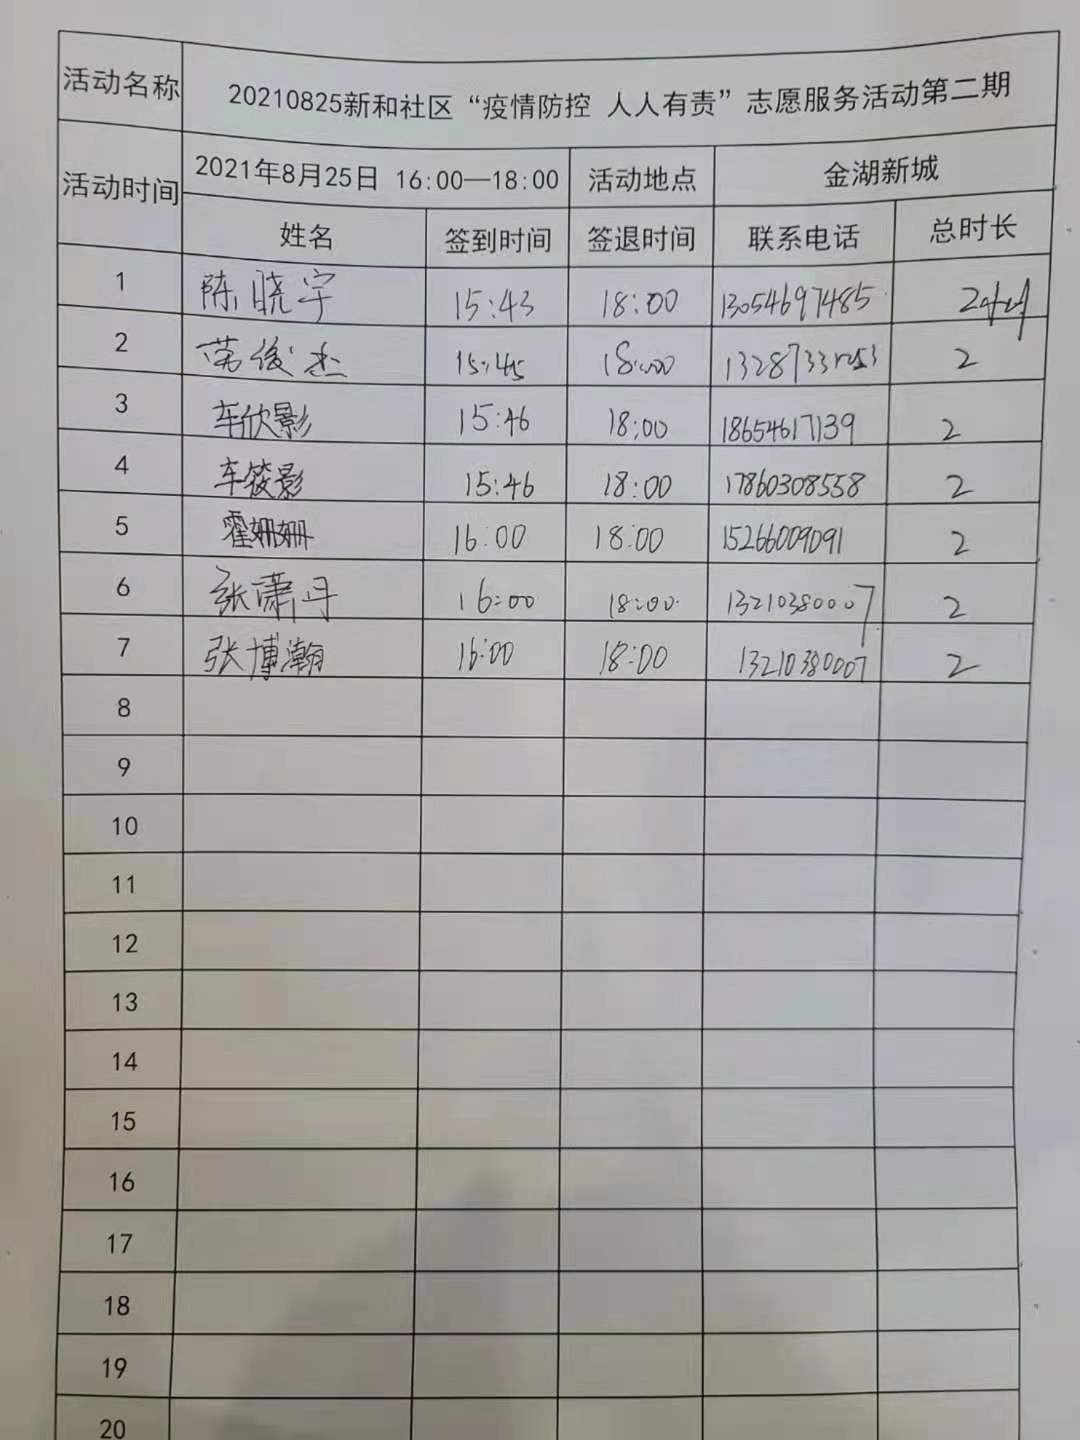 活动名称 20210825新和社区“疫情防控 人人有责”志愿服务活动第二期
活动时间 2021年8月25日 16:00—18:00 活动地点 金湖新城
姓名 签到时间 签退时间 联系电话 总时长
1 陈晓宇 15:43 18:00 13054697485 2小时
2 俊杰 15:45 18:00 2
3 车欣影 15:46 18:00 18654617139 2
4 车筱影 15:46 18:00 17860308558 2
5 霍姗姗 16:00 18:00 15266009091 2
6 张潇丹 16:00 18:00 13210380007 2
7 张博瀚 16:00 18:00 13210380007 2
8
9
10
11
12
13
14
15
16
17
18
19
20